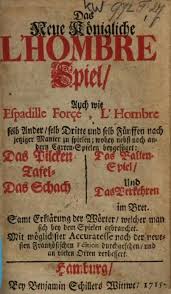 Das
Neue Königliche
L'HOMBRE
Spiel/
Auch wie
Espadille Forçe L'Hombre
selb Ander/ selb Dritte und selb Fünffen nach
jetziger Manier zu spielen; wobey nebst noch an-
dern Garten-Spielen beygefüget:
Das Pilcken-
Tafel-
Das Schach
Das Ballen-
Spiel/
Und
Das Verkehren
im Bret.
Samt Erklärung der Wörter/ welcher man
sich bey dem Spielen gebrauchet.
Mit möglichster Accuratesse nach der neue-
sten Frantzösischen Edition durchgesehen/ und
an vielen Orten verbessert.
Hamburg/
Bey Benjamin Schillers Wittwe/ 1715.